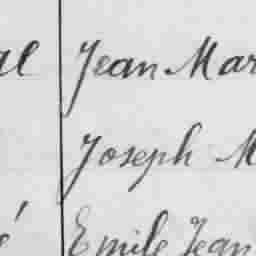 al Jean Mar
Joseph M
é Emile Jean